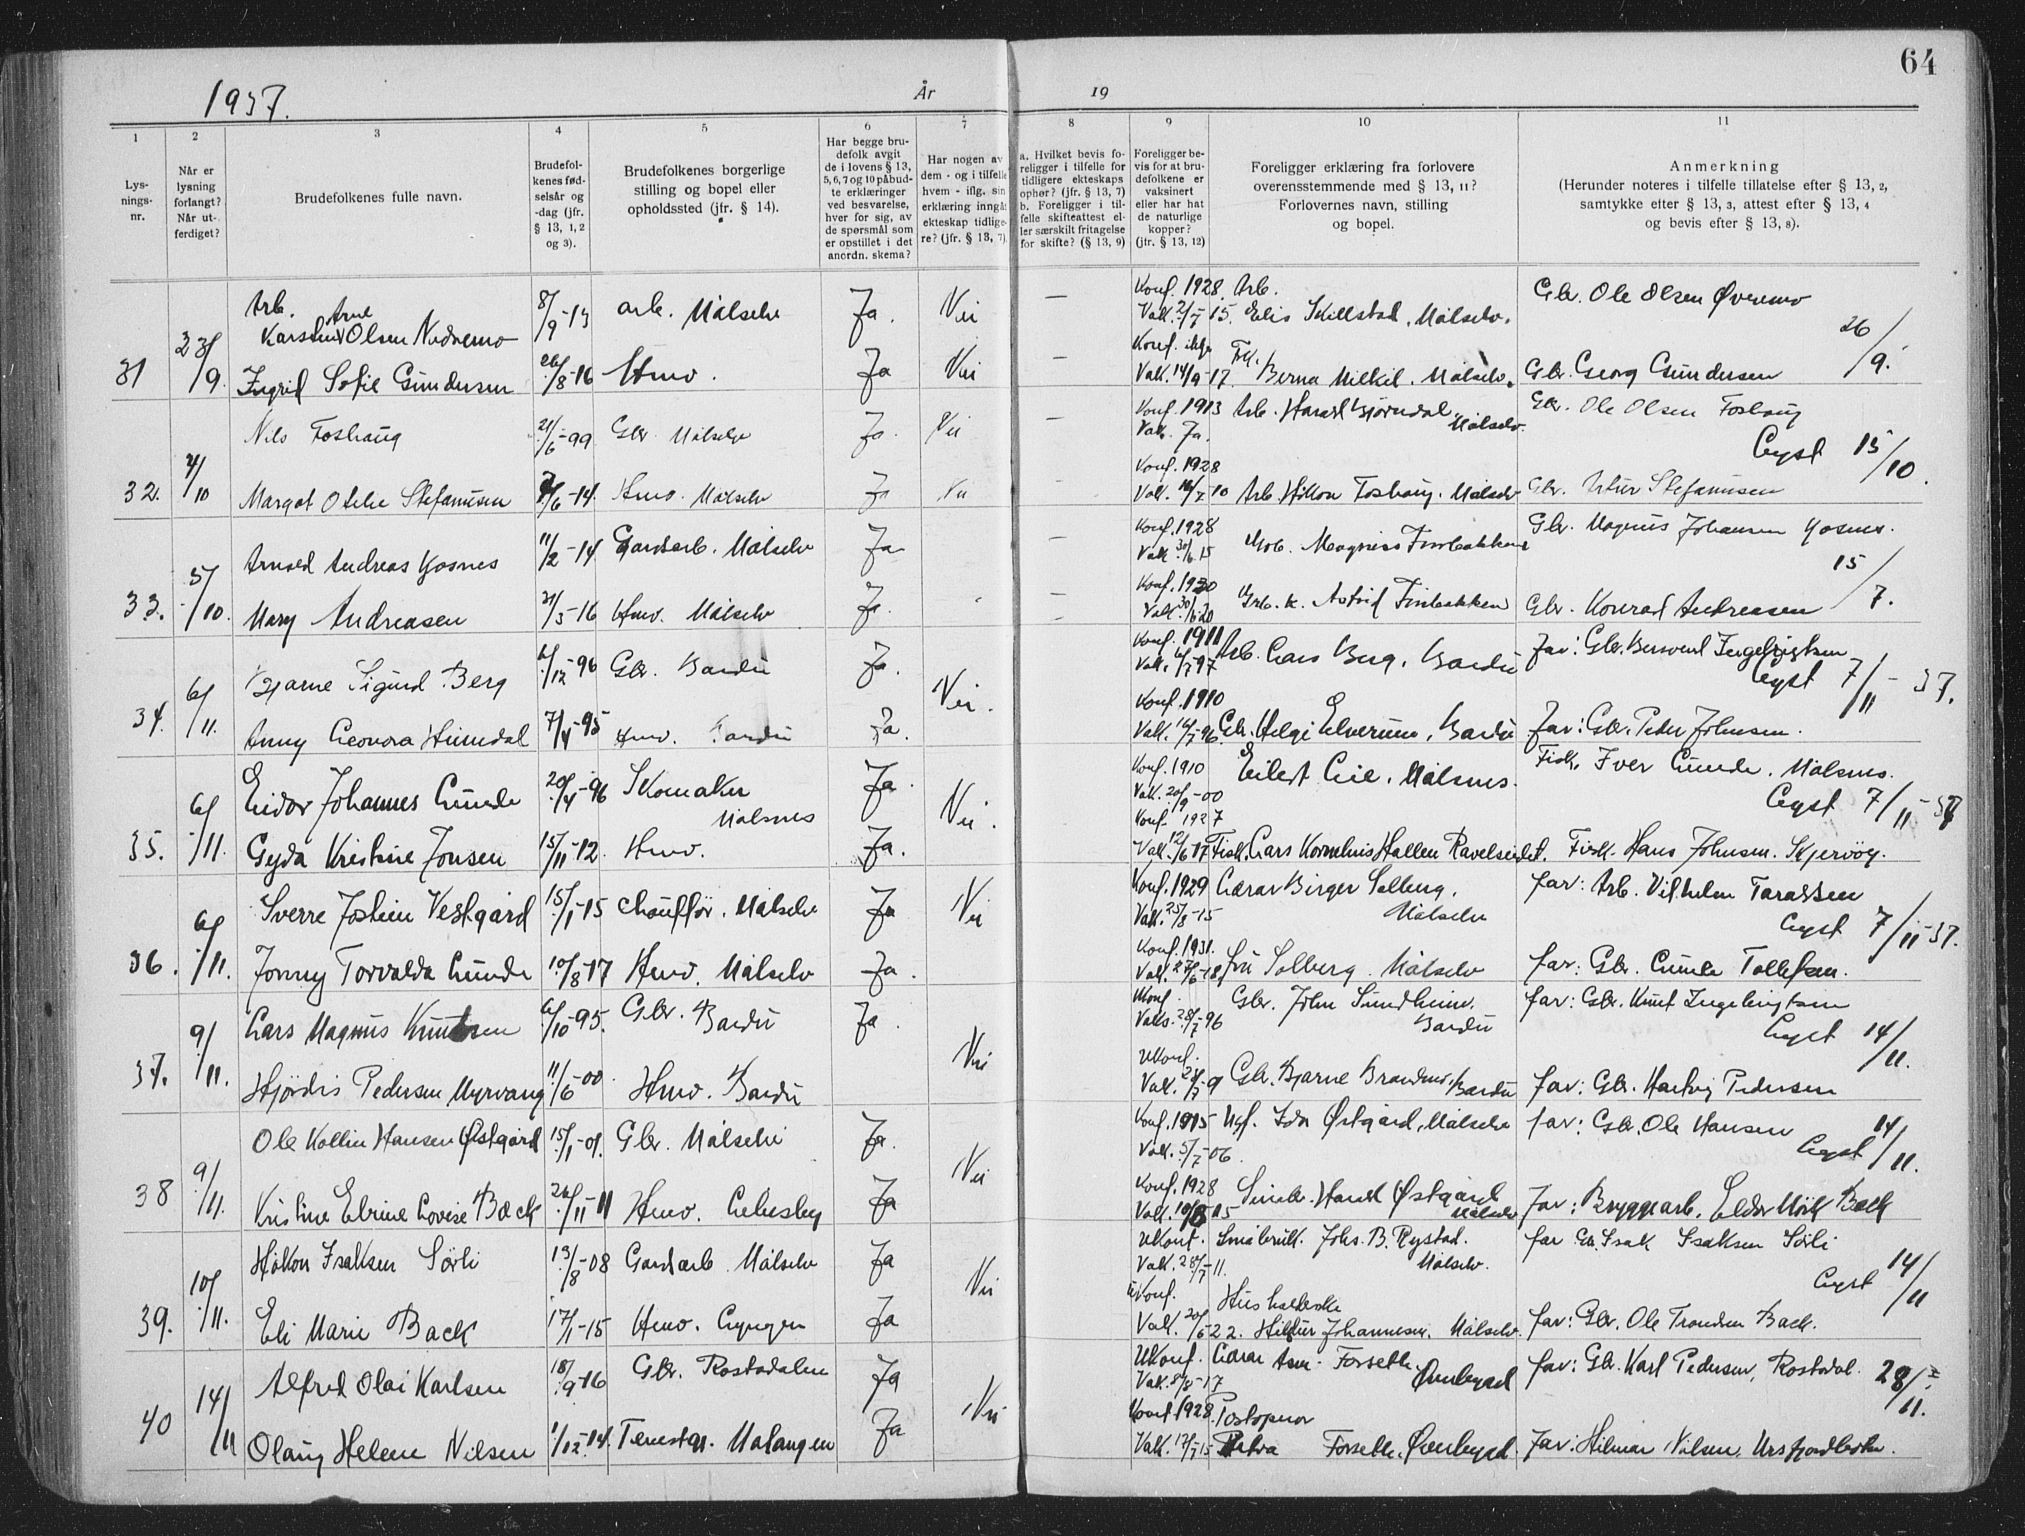 64
1937.
År
19
1
2
3
4
5
6
7
8
9
10
11
Lys-
nings-
nr.
Når er
lysning
forlangt?
Når ut-
ferdiget?
Brudefolkenes fulle navn.
Brudefol-
kenes fød-
selsår og
-dag (jfr.
§ 13, 1, 2
og 3).
Brudefolkenes borgerlige
stilling og bopel eller
opholdssted (jfr. § 14).
Har begge bru-
defolk avgit
de i lovens § 13,
5, 6, 7 og 10 påbud-
te erklæringer
ved besvarelse,
hver for sig, av
de spørsmål som
er opstillet i det
anordn. skema?
Har nogen av
dem - og i tilfelle
hvem - iflg. sin
erklæring inngåt
ekteskap tidlige-
re? (jfr. § 13, 7)
a. Hvilket bevis fo-
religger i tilfelle for
tidligere ekteskaps
ophør? (jfr. § 13, 7)
b. Foreligger i til-
felle skifteattest el-
ler særskilt fritagelse
for skifte? (§ 13, 9)
Foreligger be-
vis for at bru-
defolkene er
vaksinert
eller har hat
de naturlige
kopper?
(jfr. § 13, 12)
Foreligger erklæring fra forlovere
overensstemmende med § 13, 11?
Forlovernes navn, stilling
og bopel.
Anmerkning
(Herunder noteres i tilfelle tillatelse efter § 13, 2,
samtykke efter § 13, 3, attest efter § 13, 4
og bevis efter § 13, 8).
Arb. Arne 8/9-13 arb. Målselv Ja. Nei — Konf. 1928 Arb. Gbr. Ole Olsen Øveremo
Karsten Olsen Nedremo Vak. 2/7-15. Elis Skillstad, Målselv.
31 23/9. Ingrid Sofie Gundersen 26/8-16 Hmv. Ja Nei — Vak. 14/9-17. Berna Milkil, Målselv. Gbr. Georg Gundersen 26/9.
Nils Foshaug 21/6-99 Gbr. Målselv Ja. Nei — Konf. 1913 Vak. Ja. Arb. Harald Bjørndal, Målselv. Gbr. Ole Olsen Foshaug
Lyst 15/10.
32. 4/10 Margot Otelie Stefanusen 6-14. Hmv. Målselv Ja Nei - Konf. 1928 Arb. Håkon Foshaug. Målselv Gbr. Artur Stefanusen
Arnold Andreas Gosnes 11/2-14 Gardsarb. Målselv Ja — Konf. 1928 Vak. 30/6 15 Magnus Finbakken Gbr. Magnus Johansen Gosnes.
15/7.
33. 5/10. Mary Andreasen 21/3-16 Hmv. Målselv Ja. — Konf. 1930 Vak. 30/6-20 Astrid Finbakken Gbr. Konrad Andreasen
Bjarne Sigurd Berg 6/12-96 Gbr. Bardu Ja. Konf. 1911 Vak. 6/7-97 Arb. Lars Berg, Bardu far: Gbr. Ingebrigtsen
Lyst 7/11-37.
34. 6/11. Anny Leonora Heimdal 7/4-95 Hmv. Bardu Ja. Nei. Konf. 1910 Vak. 16/7-96. Gbr. Helge Elverum, Bardu far: Gbr. Peder Johnsen.
Eidar Johannes Lunde 20/4-96 Skomaker Målsnes Ja. Konf. 1910 Vak. 20/9-00 Eilert Lie, Målsnes. Fisk. Iver Lunde, Målsnes.
Lyst 7/11-37
35. 6/11. Gyda Kristine Jonsen 15/11-12. Hmv. Ja. Nei. Konf. 1927 Vak. 12/6 17 Fisk. Lars Kornelius Hallen Ravelseidet. Fisk. Hans Johnsen. Skjervøy.
Sverre Jostein Vestgård 15/1-15 Chauffør. Målselv Ja Nei Konf. 1929 Vak. 25/8-15 Lærar Birger Solberg, Målselv far: Arb. Vilhelm Taraldsen
Lyst 7/11-37.
36. 6/11. Jonny Torvalda Lunde 10/8-17 Hmv. Målselv Ja. Konf. 1931. Vak. 27/6-18. fru Solberg. Målselv far: Gbr. Lunde Tollefsen.
Lars Magnus Knutsen 6/10-95. Gbr. Bardu Ja. Ukonf. Vaks. 28/7-96 Gbr. John Sundheim. Bardu far: Gbr. Knut Ingebrigtsen
Lyst 14/11.
37. 9/11. Hjørdis Pedersen Myrvang 11/6-00 Hmv. Bardu Nei Ukonf. Gbr. Bjarne Brandmo, Bardu far: Gbr. Hartvig Pedersen
Ole Kollin Hansen Østgård 15/1-01. Gbr. Målselv Ja. Konf. 1915 Vak. 5/7-06. Ugf. Ida Østgård, Målselv far: Gbr. Ole Hansen
Lyst 14/11.
38 9/11. Kristine Elvine Lovise Bæck 26/11-11 Hmv. Lebesby Ja Nei Konf. 1928 Harald Østgård Målselv far: Bryggearb. Eldor Mørk Bæck
Håkon Isaksen Sørli 13/8-08 Gardsarb. Målselv Ja Ukonf. Vak. 28/7-11. Småbruk. Johs. B. Rystad. Målselv. far Gbr. Isak Isaksen Sørli
Lyst 14/11
39. 10/11. Eli Marie Bæck 17/1-15 Hmv. Lyngen Ja Nei Ukonf. Vak. 20/6-22. Husholderske Hildur Johannesen, Målselv. far: Gbr. Ole Tronden Bæck.
Alfred Olai Karlsen 18/9-16 Gbr. Rostadalen Ja Ukonf. Vak. 8/8-17 Lærar Asm. Forseth. Øverbygd far: Gbr. Karl Pedersen, Rostadal. 28/11.
40 14/11 Olaug Helene Nilsen 1/12-14. Tenestej. Malangen Ja Nei Konf. 1928. Vak. 17/7-15 Postopnar Petra Forseth. Øverbygd. far: Hilmar Nilsen, Ursfjordbotn.